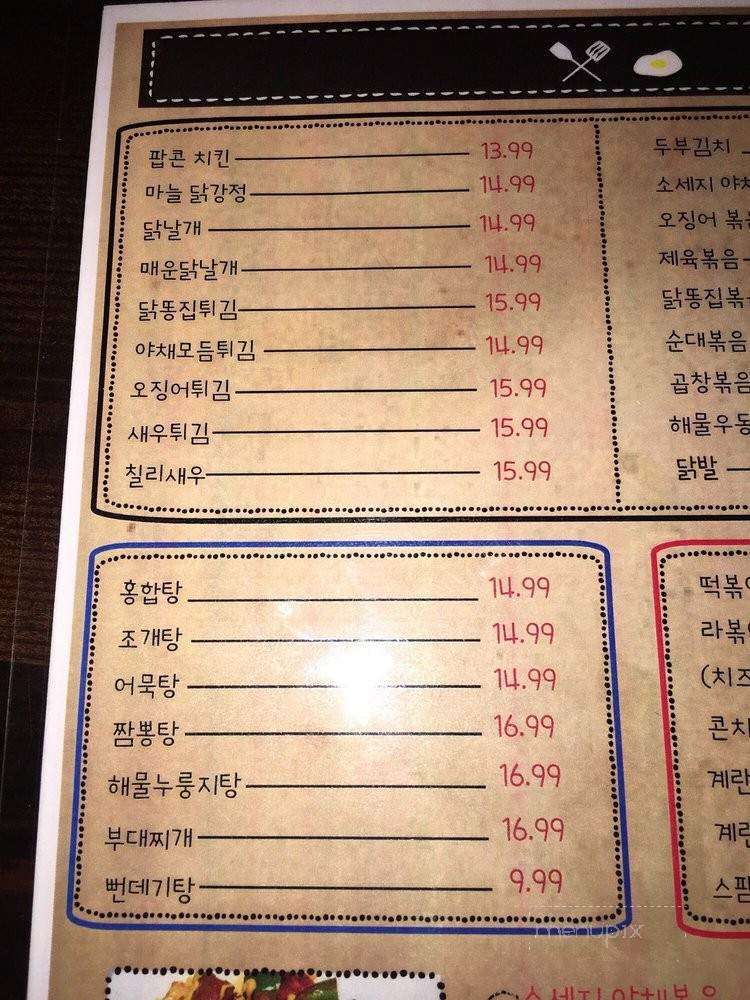 팝콘 치킨 13.99
마늘 닭강정 14.99
닭날개 14.99
매운닭날개 14.99
닭똥집튀김 15.99
야채모듬튀김 14.99
오징어튀김 15.99
새우튀김 15.99
칠리새우 15.99
두부김치
소세지
오징어
제육볶음
닭똥집볶
순대볶음
곱창볶음
해물우동
닭발
홍합탕 14.99
조개탕 14.99
어묵탕 14.99
짬뽕탕 16.99
해물누룽지탕 16.99
부대찌개 16.99
뻔데기탕 9.99
떡볶
라볶
(치즈
콘치
계란
계란
스팸
소세지 야채볶음
menupix